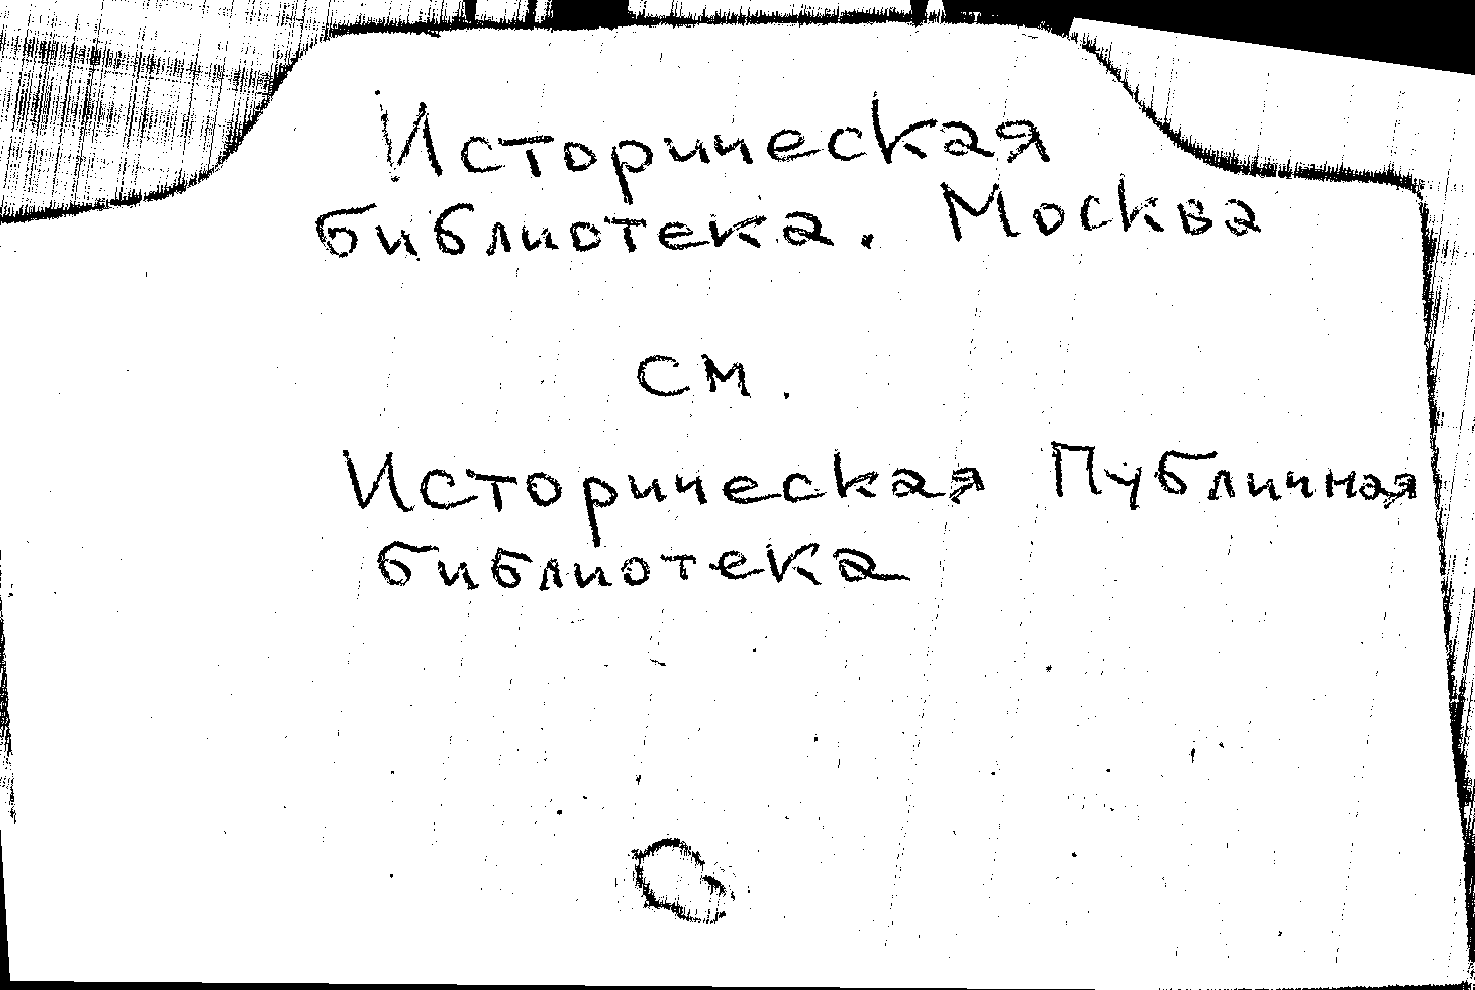 Историческая
библиотека. Москва
см.
Историческая Публичная
библиотека